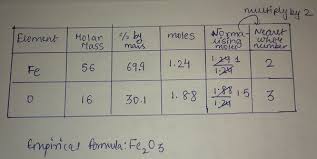 multiply by 2
Element Molar Mass % by mass moles Normalising moles Nearest whole number
Fe 56 69.9 1.24 1.24/1.24 1 2
O 16 30.1 1.88 1.88/1.24 1.5 3
Empirical formula: Fe2O3